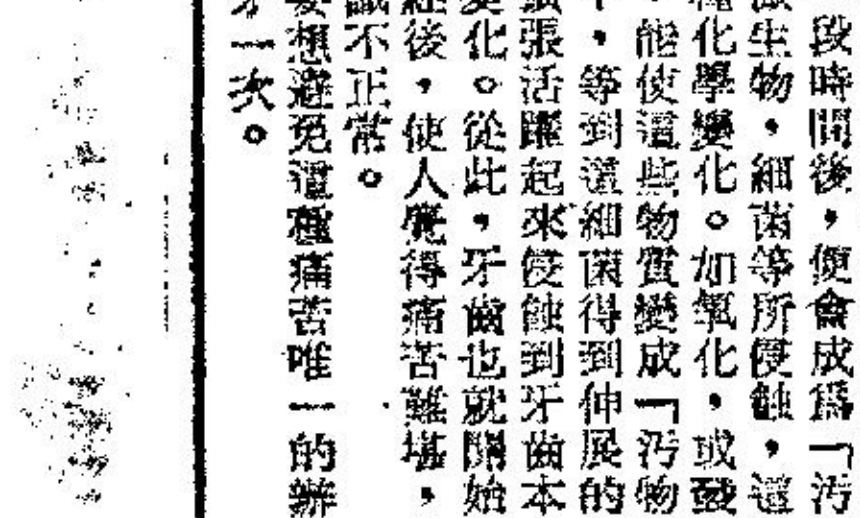 段時間後，便會成爲「汚
生物，細菌等所侵蝕，這
化學變化。如氧化，或發
能使這些物質變成「汚物
，等到這細菌得到伸展的
張活躍起來侵蝕到牙齒本
化。從此，牙齒也就開始
後，使人覺得痛苦難堪，
不正常。
想避免這種痛苦唯一的辦
一次。